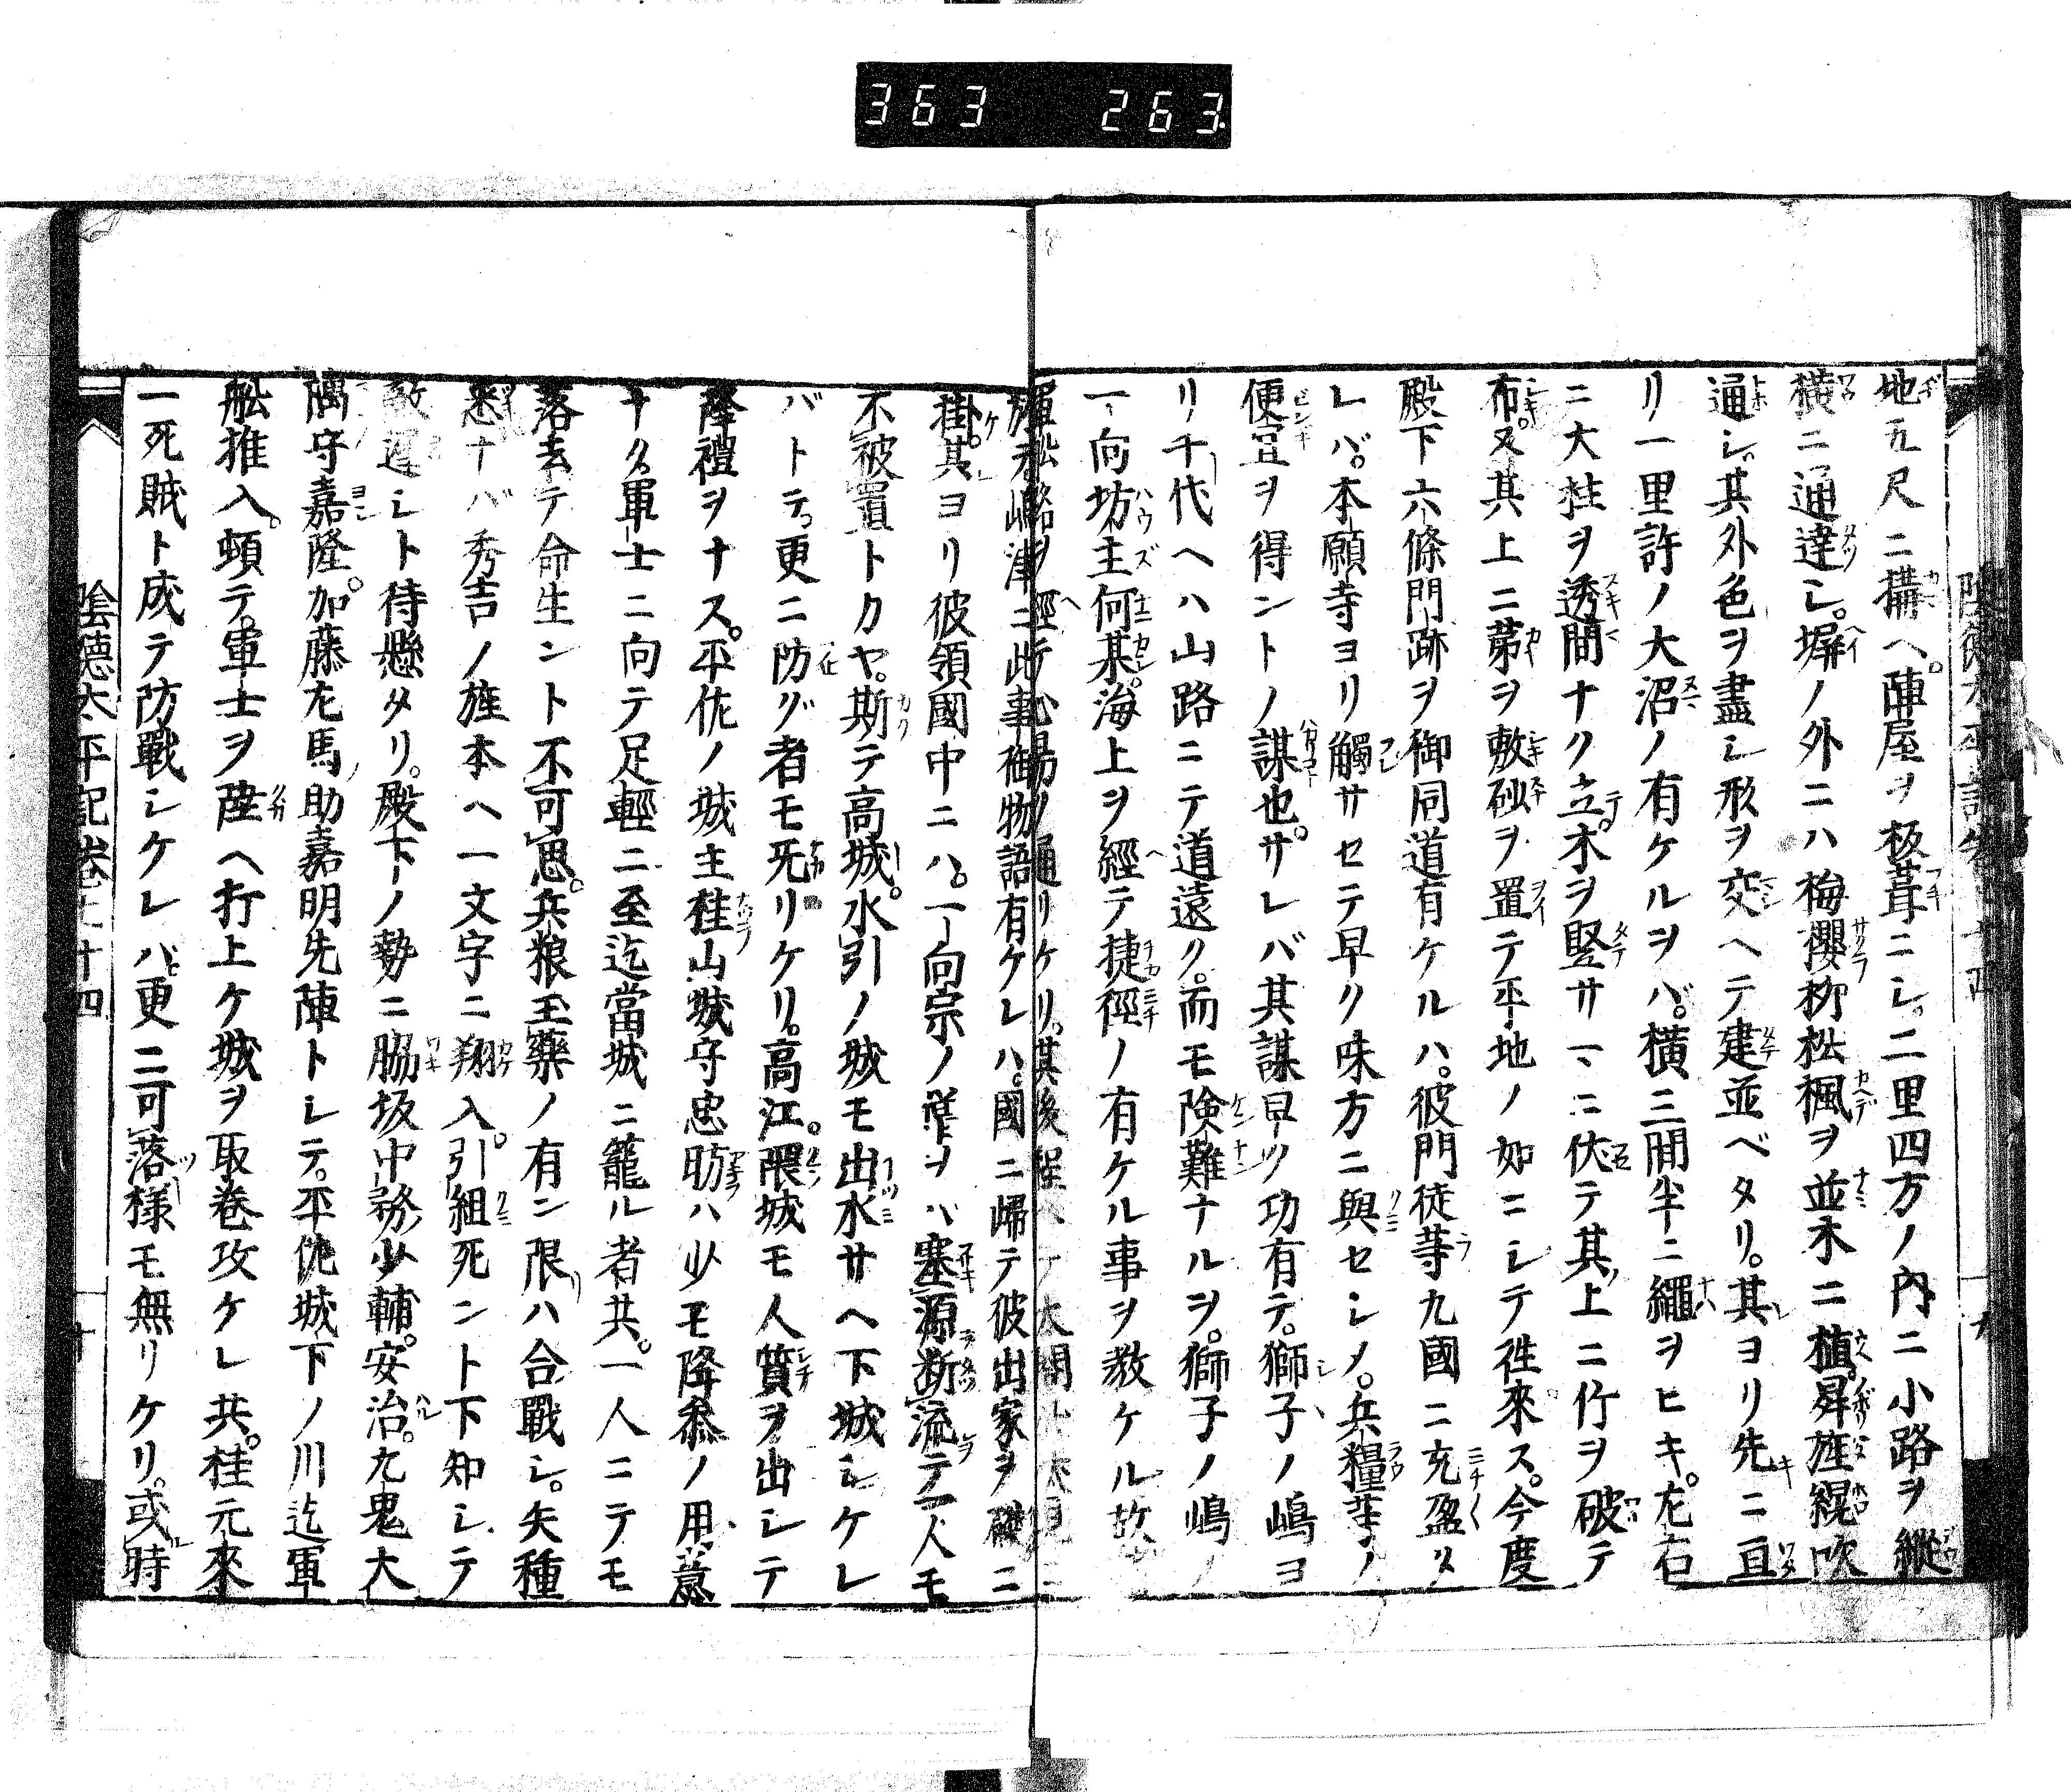 363 263
地五尺ニ搆ヘ。陣屋ヲ板葺ニシ。二里四方ノ內ニ小路ヲ縱
橫ニ通達シ。塀ノ外ニハ梅櫻柳松楓ヲ並木ニ植。昇旌緄吹
通シ。其外色ヲ盡シ形ヲ交ヘテ建並ベタリ。其ヨリ先ニ亘
リ一里許ノ大沼ノ有ケルヲバ。橫三間半ニ繩ヲヒキ。左右
ニ大柱ヲ透間ナク立。木ヲ竪サマニ伏テ其上ニ竹ヲ破テ
布。又其上ニ茅ヲ敷砂ヲ置テ平地ノ如ニシテ徃來ス。今度
殿下六條門跡ヲ御同道有ケルハ。彼門徒等九國ニ充盈タ
レバ。本願寺ヨリ觸サセテ早ク味方ニ與セシメ。兵糧等ノ
便宜ヲ得ントノ謀也。サレバ其謀早ツ功有テ。獅子ノ嶋ヨ
リ千代ヘハ山路ニテ道遠ク。而モ険難ナルヲ。獅子ノ嶋ノ
一向坊主何某。海上ヲ經テ捷徑ノ有ケル事ヲ教ケル故
松路ヲ經テ心易ク通リケリ。其後
嶋津ニ此事御物語有ケレハ。國ニ歸テ彼出家ヲ磔ニ
掛。其ヨリ彼領國中ニハ。一向宗ノ輩ヲハ塞源斷流テ一人モ
不被置トカヤ。斯テ高城。水引ノ城モ出水サヘ下城シケレ
バトテ。更ニ防グ者モ死リケリ。高江。隈城モ人質ヲ出シテ
降禮ヲナス。平佐ノ城主桂山城守忠昉ハ少モ降參ノ用意
ナク。軍士ニ向テ足輕ニ至迄當城ニ籠ル者共。一人ニテモ
落去テ命生ント不可思。兵粮玉藥ノ有ン限ハ合戰シ。矢種
悉ナバ秀吉ノ旌本ヘ一文字ニ翔入。引組死ント下知シテ
敵遲シト待懸タリ。殿下ノ勢ニ脇坂中務少輔。安治。九鬼大
隅守嘉隆。加藤左馬助嘉明先陣トシテ。平佐城下ノ川迄軍
舩推入。頓テ。軍士ヲ陸ヘ打上ケ城ヲ取巻攻ケレ共。桂元來
一死賊ト成テ防戰シケレバ。更ニ可落樣モ無リケリ。或時
陰德太平記卷七十四